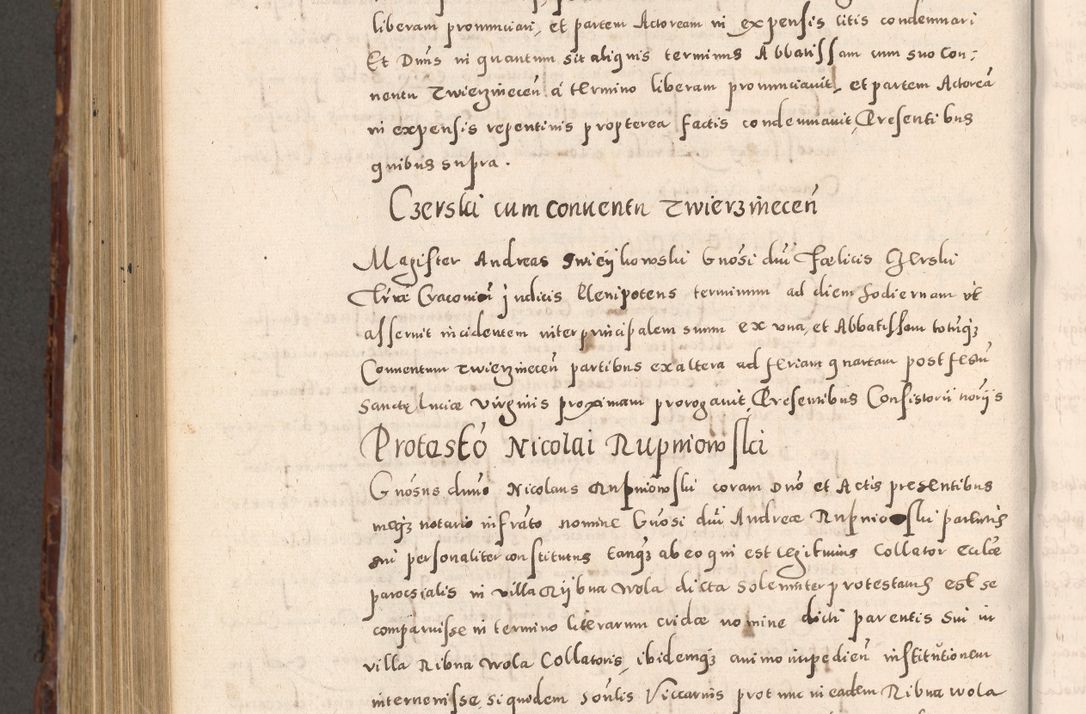 liberam pronunciari, et partem Actoream in expensis litis condemnari
Et Dnus in quantum sit aliquis terminus Abbatissam cum suo Con:
nentu Twierzinecen a termino liberam pronunciauit, et partem Actorea
in expensis repentinis propterea factis condemnauit, Presentibus
quibus supra.
Czerski cum conuentu Twierzinecen
Magister Andreas Swieÿkowski Gnosi dni Fœlicis Czerski
Trræ Cracouien Judicis Plenipotens terminum ad diem hodiernam vt
asseruit incidentem inter principalem suum ex vna, et Abbatissam totumqz
Conuentum Twierzinecen partibus ex altera ad feriam quartam post festu
Sanctę Luciæ Virginis proximam prorogauit, Presentibus Consistorii norijs
Protestō Nicolai Rupniowski
Gnosus dnus Nicolaus Rupniowski coram Dno et Actis presentibus
meqz notario infrato nomine Gnosi dni Andreæ Rupniowski parentis
sui personaliter constitutus tanqz ab eo qui est legitimus Collator Ecclæ
parocsialis in villa Rÿbna Wola dicta solemniter protestatus est se
comparuisse in termino literarum cridæ nomine dicti parentis sui in
villa Ribna Wola Collatoris, ibidemqz animo impedien institutionem
interuenisse, siquodem Viccarius prot nunc in eadem Ribna Wola